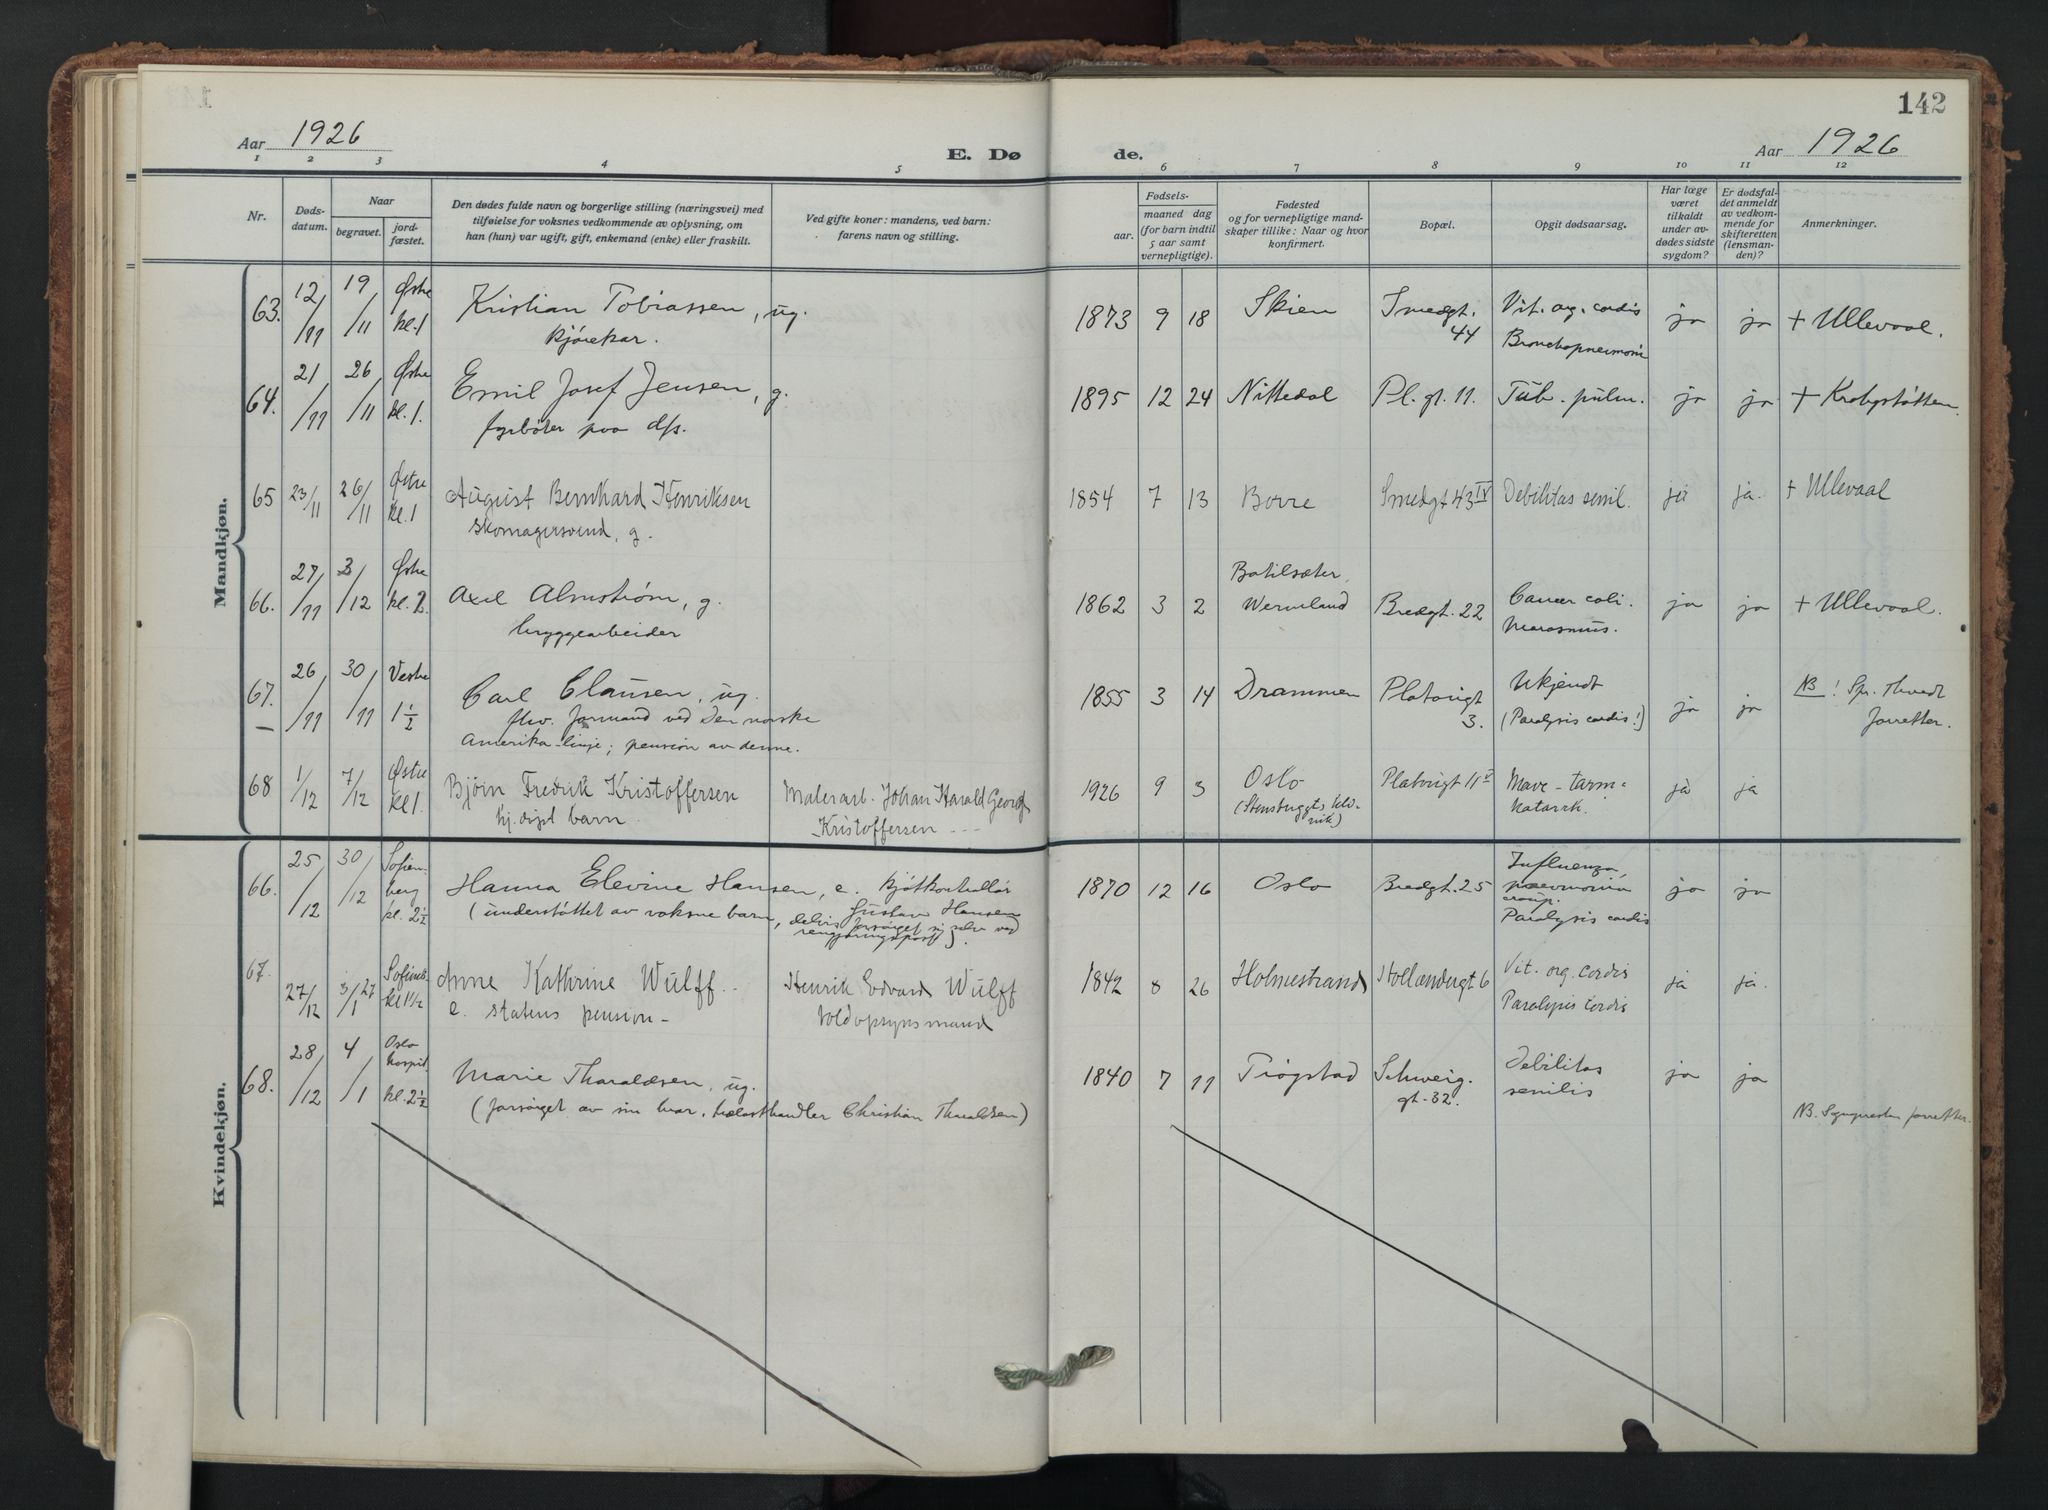 142
Aar 1926
E. Dø de.
Aar 1926
1 2 3 4 5 6 7 8 9 10 11 12
Nr.
Døds-
datum.
Naar
begravet.
jord-
fæstet.
Den dødes fulde navn og borgerlige stilling (næringsvei) med
tilføielse for voksnes vedkommende av oplysning, om
han (hun) var ugift, gift, enkemand (enke) eller fraskilt.
Ved gifte koner: mandens, ved barn:
farens navn og stilling.
Fødsels-
aar.
maaned dag
(for barn indtil
5 aar samt
vernepligtige).
Fødested
og for vernepligtige mand-
skaper tillike: Naar og hvor
konfirmert.
Bopæl.
Opgit dødsaarsag.
Har læge
været
tilkaldt
under av-
dødes sidste
sygdom?
Er dødsfal-
det anmeldt
av vedkom-
mende for
skifteretten
(lensman-
den)?
Anmerkninger.
Mandkjøn.
63. 12/11 19/11 Østre kl. 1 Kristian Tobiassen, ug. 1873 9 18 Skien Smedgt. 44 Vit. org. cordis ja ja + Ullevaal.
kjørekar. Bronchopneumoni
64. 21/11 26/11 Østre kl. 1. Emil Josef Jensen, g. 1895 12 24 Nittedal Pl. gt. 11. Tub. pulm. ja ja + Krohgstøtten.
fyrbøter paa d/s.
65 23/11 26/11 Østre kl. 1 August Bernhard Henriksen 1854 7 13 Borre Smedgt 43 IV Debilitas senil. ja ja. + Ullevaal
skomagersvend, g.
66. 27/11 3/12 Østre kl. 2. Axel Almstrøm, g. 1862 3 2 Wermland Bredgt. 22 Cancer coli. ja ja + Ullevaal.
bryggearbeider Marasmus.
67. 26/11 30/11 Vestre 1 1/2 Carl Clausen, ug. 1855 3 14 Drammen Platousgt 3. Ukjendt ja ja NB! Spr. Thvedt
fhv. formand ved Den norske (Paralysis cordis!) forretter.
Amerika-linje; pension av denne.
68 1/12 7/12 Østre kl 1. Bjørn Fredrik Kristoffersen Malerarb. Johan Harald Georg 1926 9 3 Oslo Platousgt 11 V Mave-tarm- ja ja
hj. døpt barn Kristoffersen (Stensbuggts klinik) Katarrh.
Kvindekjøn.
66. 25/12 30/12 Sofienberg kl. 2 1/2 Hanna Elevine Hansen, e. kjøtkontrollør 1870 12 16 Oslo Bredgt. 25 Influenza, ja ja
Gustav Hansen pneumonia croup.
(understøttet av voksne barn, delvis forsørget sig selv ved Paralysis cordis
rengjøringspost).
67. 27/12 3/1 27 Sofienb. kl 1 1/2 Anne Kathrine Wulff Henrik Edvard Wulff 1842 8 26 Holmestrand Hollændergt 6 Vit. org. cordis ja ja.
e. statens pension - Toldopsynsmand Paralysis cordis
68. 28/12 4/1 Oslo hospit. kl. 2 1/2 Marie Tharaldsen, ug. 1840 7 11 Trøgstad Schweig. gt. 32. Debilitas ja ja
(forsørget av sin bror, trælasthandler Christian Tharaldsen) senilis
NB. Sognepresten forretter.